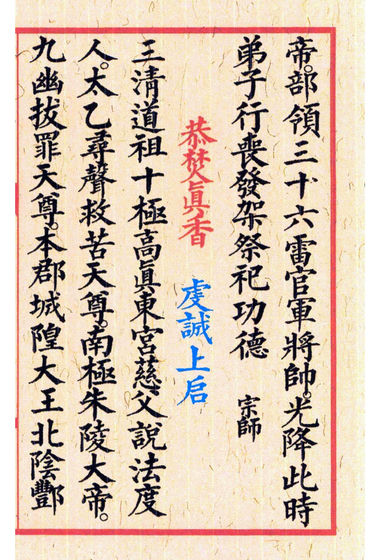 帝。部領三十六雷官軍將帥。光降此時
弟子行喪發架祭祀功德 宗師
恭焚真香 虔誠上启
三清道祖十極高真東宮慈父說法度
人。太乙尋聲救苦天尊。南極朱陵大帝。
九幽拔罪天尊。本郡城隍大王北陰酆